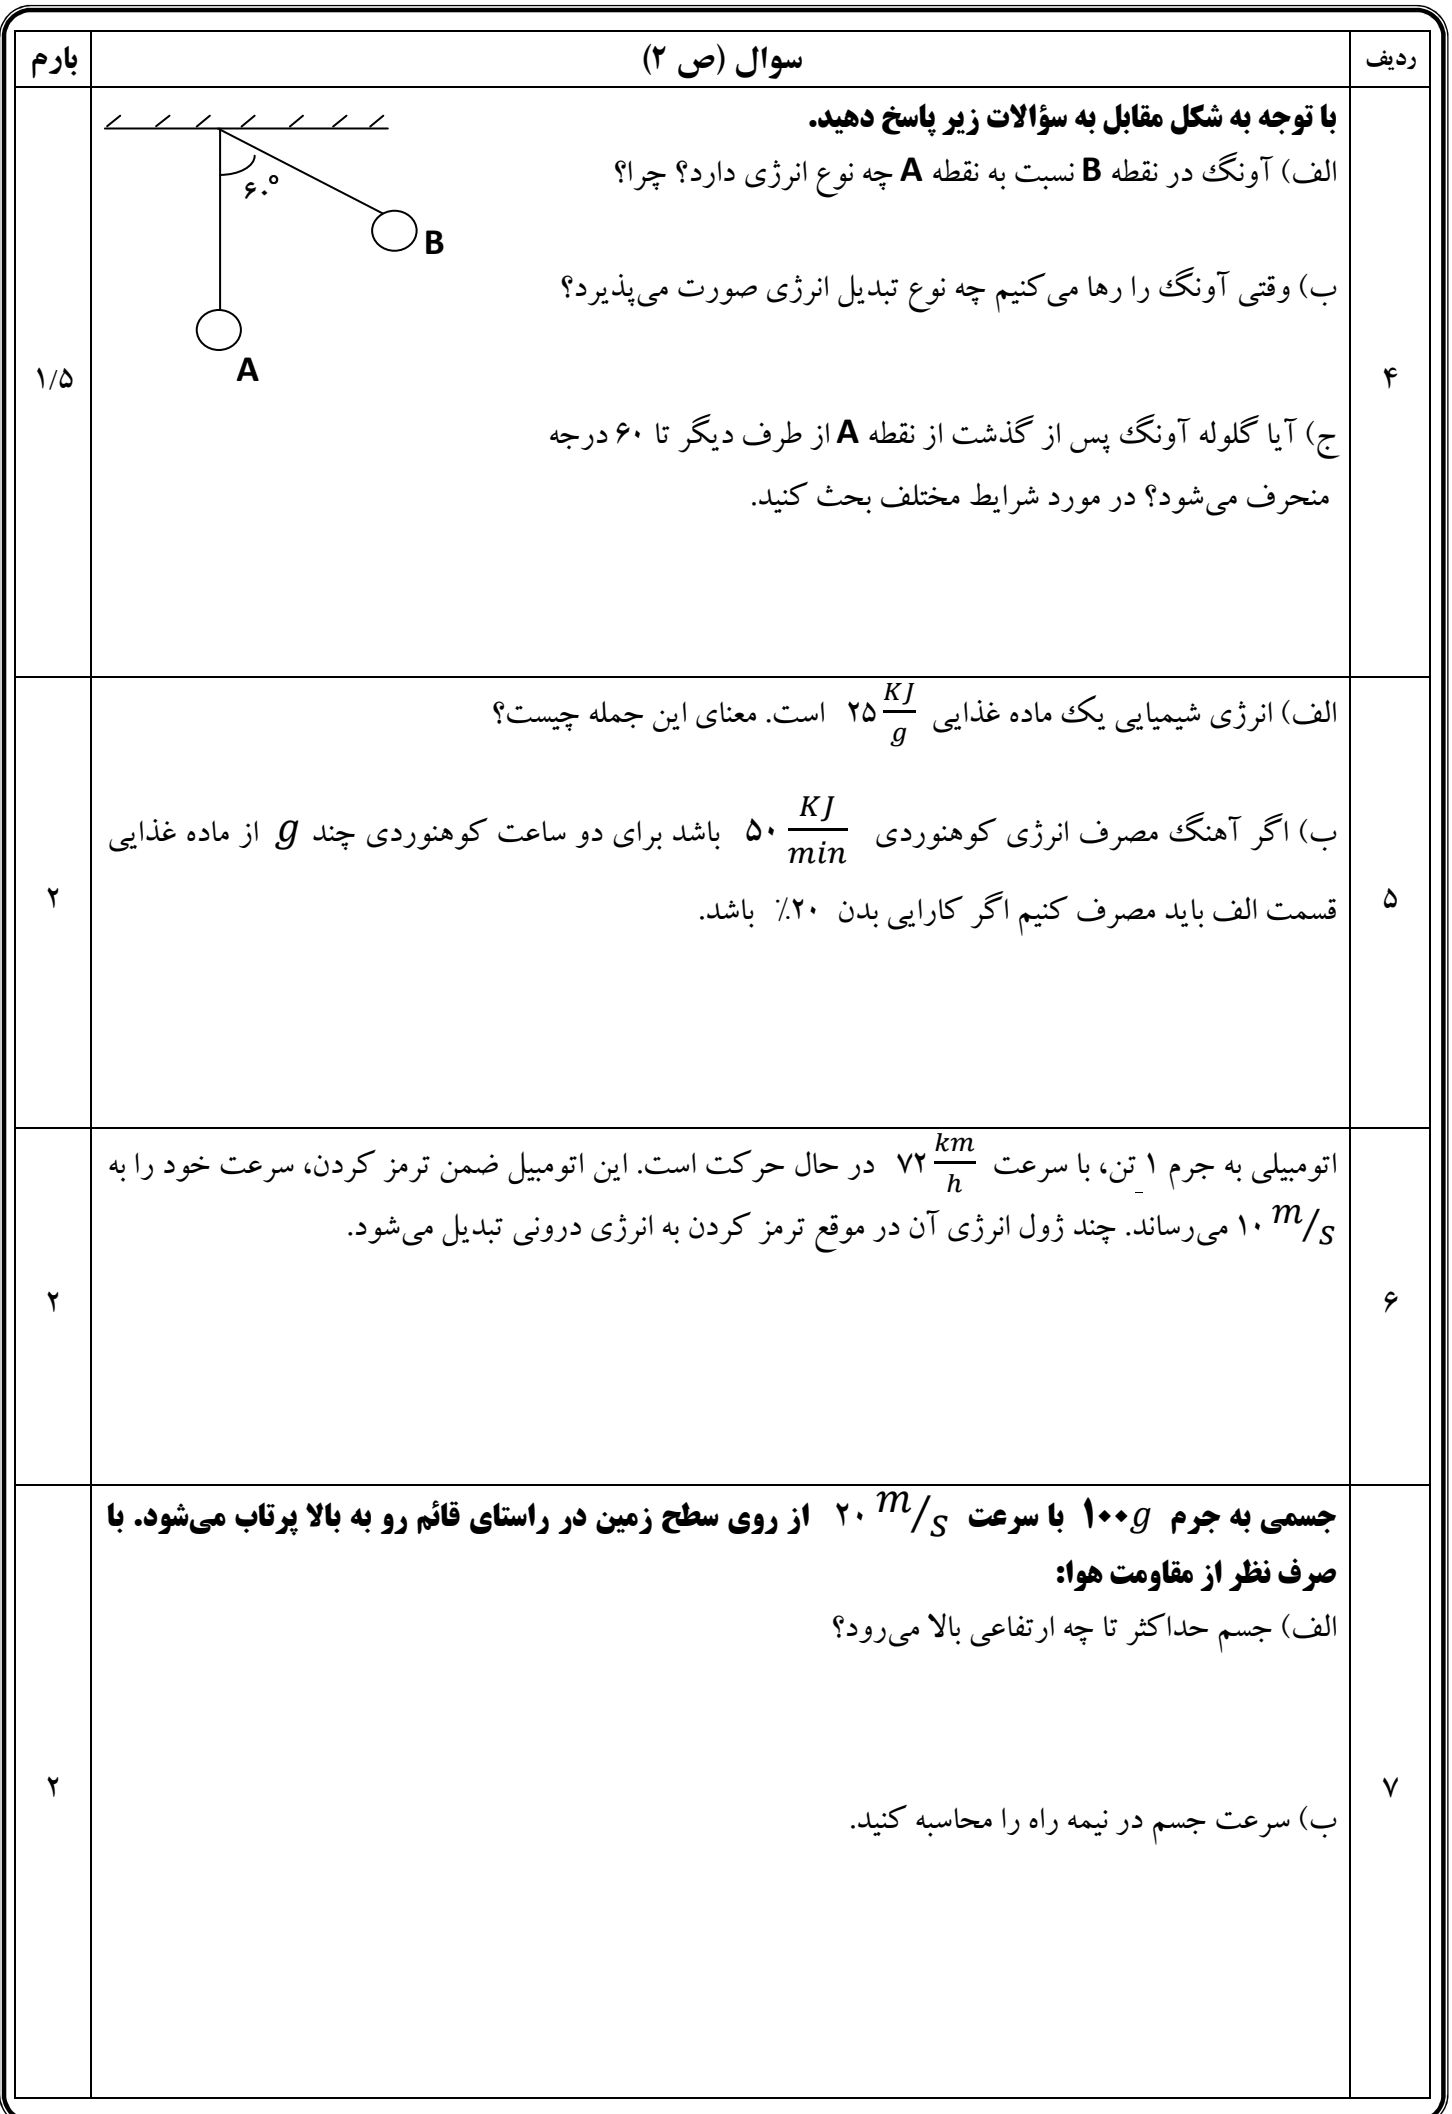 ردیف سوال (ص ۲) بارم
۴
با توجه به شکل مقابل به سؤالات زیر پاسخ دهید.
الف) آونگ در نقطه B نسبت به نقطه A چه نوع انرژی دارد؟ چرا؟
ب) وقتی آونگ را رها می‌کنیم چه نوع تبدیل انرژی صورت می‌پذیرد؟
ج) آیا گلوله آونگ پس از گذشت از نقطه A از طرف دیگر تا ۶۰ درجه
منحرف می‌شود؟ در مورد شرایط مختلف بحث کنید.
۶۰°
B
A
۱/۵
۵
الف) انرژی شیمیایی یک ماده غذایی ۲۵ KJ/g است. معنای این جمله چیست؟
ب) اگر آهنگ مصرف انرژی کوهنوردی ۵۰ KJ/min باشد برای دو ساعت کوهنوردی چند g از ماده غذایی
قسمت الف باید مصرف کنیم اگر کارایی بدن ۲۰٪ باشد.
۲
۶
اتومبیلی به جرم ۱ تن، با سرعت ۷۲ km/h در حال حرکت است. این اتومبیل ضمن ترمز کردن، سرعت خود را به
۱۰ m/s می‌رساند. چند ژول انرژی آن در موقع ترمز کردن به انرژی درونی تبدیل می‌شود.
۲
۷
جسمی به جرم ۱۰۰g با سرعت ۲۰ m/s از روی سطح زمین در راستای قائم رو به بالا پرتاب می‌شود. با
صرف نظر از مقاومت هوا:
الف) جسم حداکثر تا چه ارتفاعی بالا می‌رود؟
ب) سرعت جسم در نیمه راه را محاسبه کنید.
۲